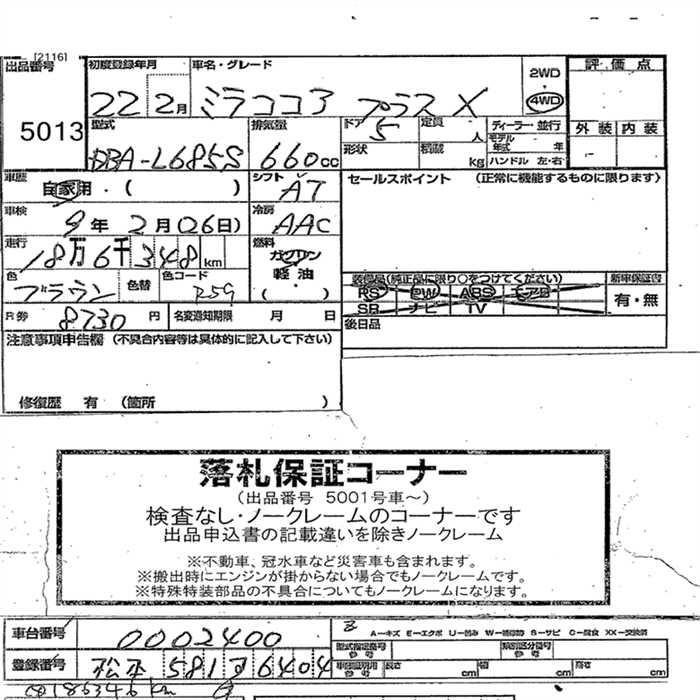 [2116]
出品番号 初度登録年月 車名・グレード 2WD 評価点
22 2月 ミラココア プラス X 4WD
5013 型式 排気量 ドア 定員 ディーラー・並行 外装 内装
DBA-L685S 660cc 5 人 モデル年式 年
形状 積載 kg ハンドル 左・右
車歴 自家用・( ) シフト AT セールスポイント (正常に機能するものに限ります)
車検 9年2月(26日) 冷房 AAC
走行 18万6千348km 燃料 ガソリン
軽油
( )
色 ブラウン 色替 色コード R59
装備品(純正品に限り○をつけてください) 新車保証書
PS PW ABS エアB 有・無
SR ナビ TV
R券 8730円 名変通知期限 月 日 後日品
注意事項申告欄 (不具合内容等は具体的に記入して下さい)
修復歴 有 (箇所 )
落札保証コーナー
(出品番号 5001号車~)
検査なし・ノークレームのコーナーです
出品申込書の記載違いを除きノークレーム
※不動車、冠水車など災害車も含まれます。
※搬出時にエンジンが掛からない場合でもノークレームです。
※特殊特装部品の不具合についてもノークレームになります。
車台番号 0002400 A-キズ E-エクボ U-凹み W-補修跡 S-サビ C-腐食 XX-交換済
型式指定番号 参考 類別区分番号 参考
登録番号 松本 581 6404 車検証明用 参考 長さ cm 幅 cm 高さ cm
186348km